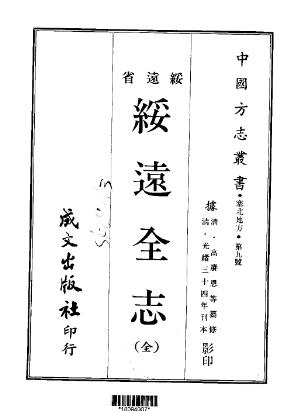 中國方志叢書・塞北地方・第九號
據清・高賡恩等纂修
清・光緒三十四年刊本影印
綏遠省
綏遠全志(全)
成文出版社印行
*10094007*